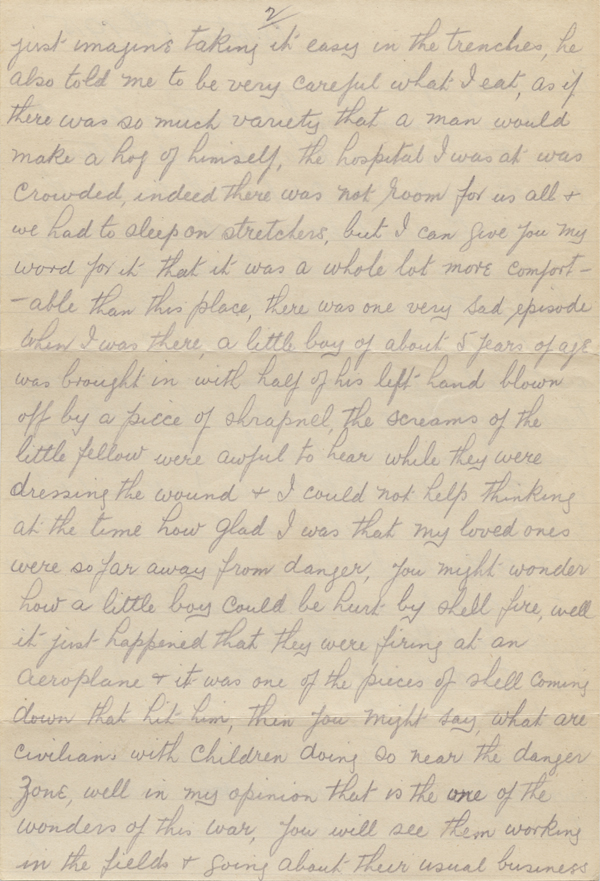 2/
just imagine taking it easy in the trenches, he
also told me to be very careful what I eat, as if
there was so much variety that a man would
make a hog of himself, the hospital I was at was
crowded, indeed there was not room for us all +
we had to sleep on stretchers, but I can give you my
word for it that it was a whole lot more comfort-
-able than this place, there was one very sad episode
when I was there, a little boy of about 5 years of age
was brought in with half of his left hand blown
off by a piece of shrapnel, the screams of the
little fellow were awful to hear while they were
dressing the wound + I could not help thinking
at the time how glad I was that my loved ones
were so far away from danger, you might wonder
how a little boy could be hurt by shell fire, well
it just happened that they were firing at an
aeroplane + it was one of the pieces of shell coming
down that hit him, then you might say, what are
civilians with children doing so near the danger
zone, well in my opinion that is the one of the
wonders of this war, you will see them working
in the fields + going about their usual business